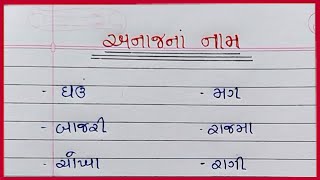 અનાજનાં નામ
- ઘઉં - મગ
- બાજરી - રાજમા
- ચોખા - રાગી